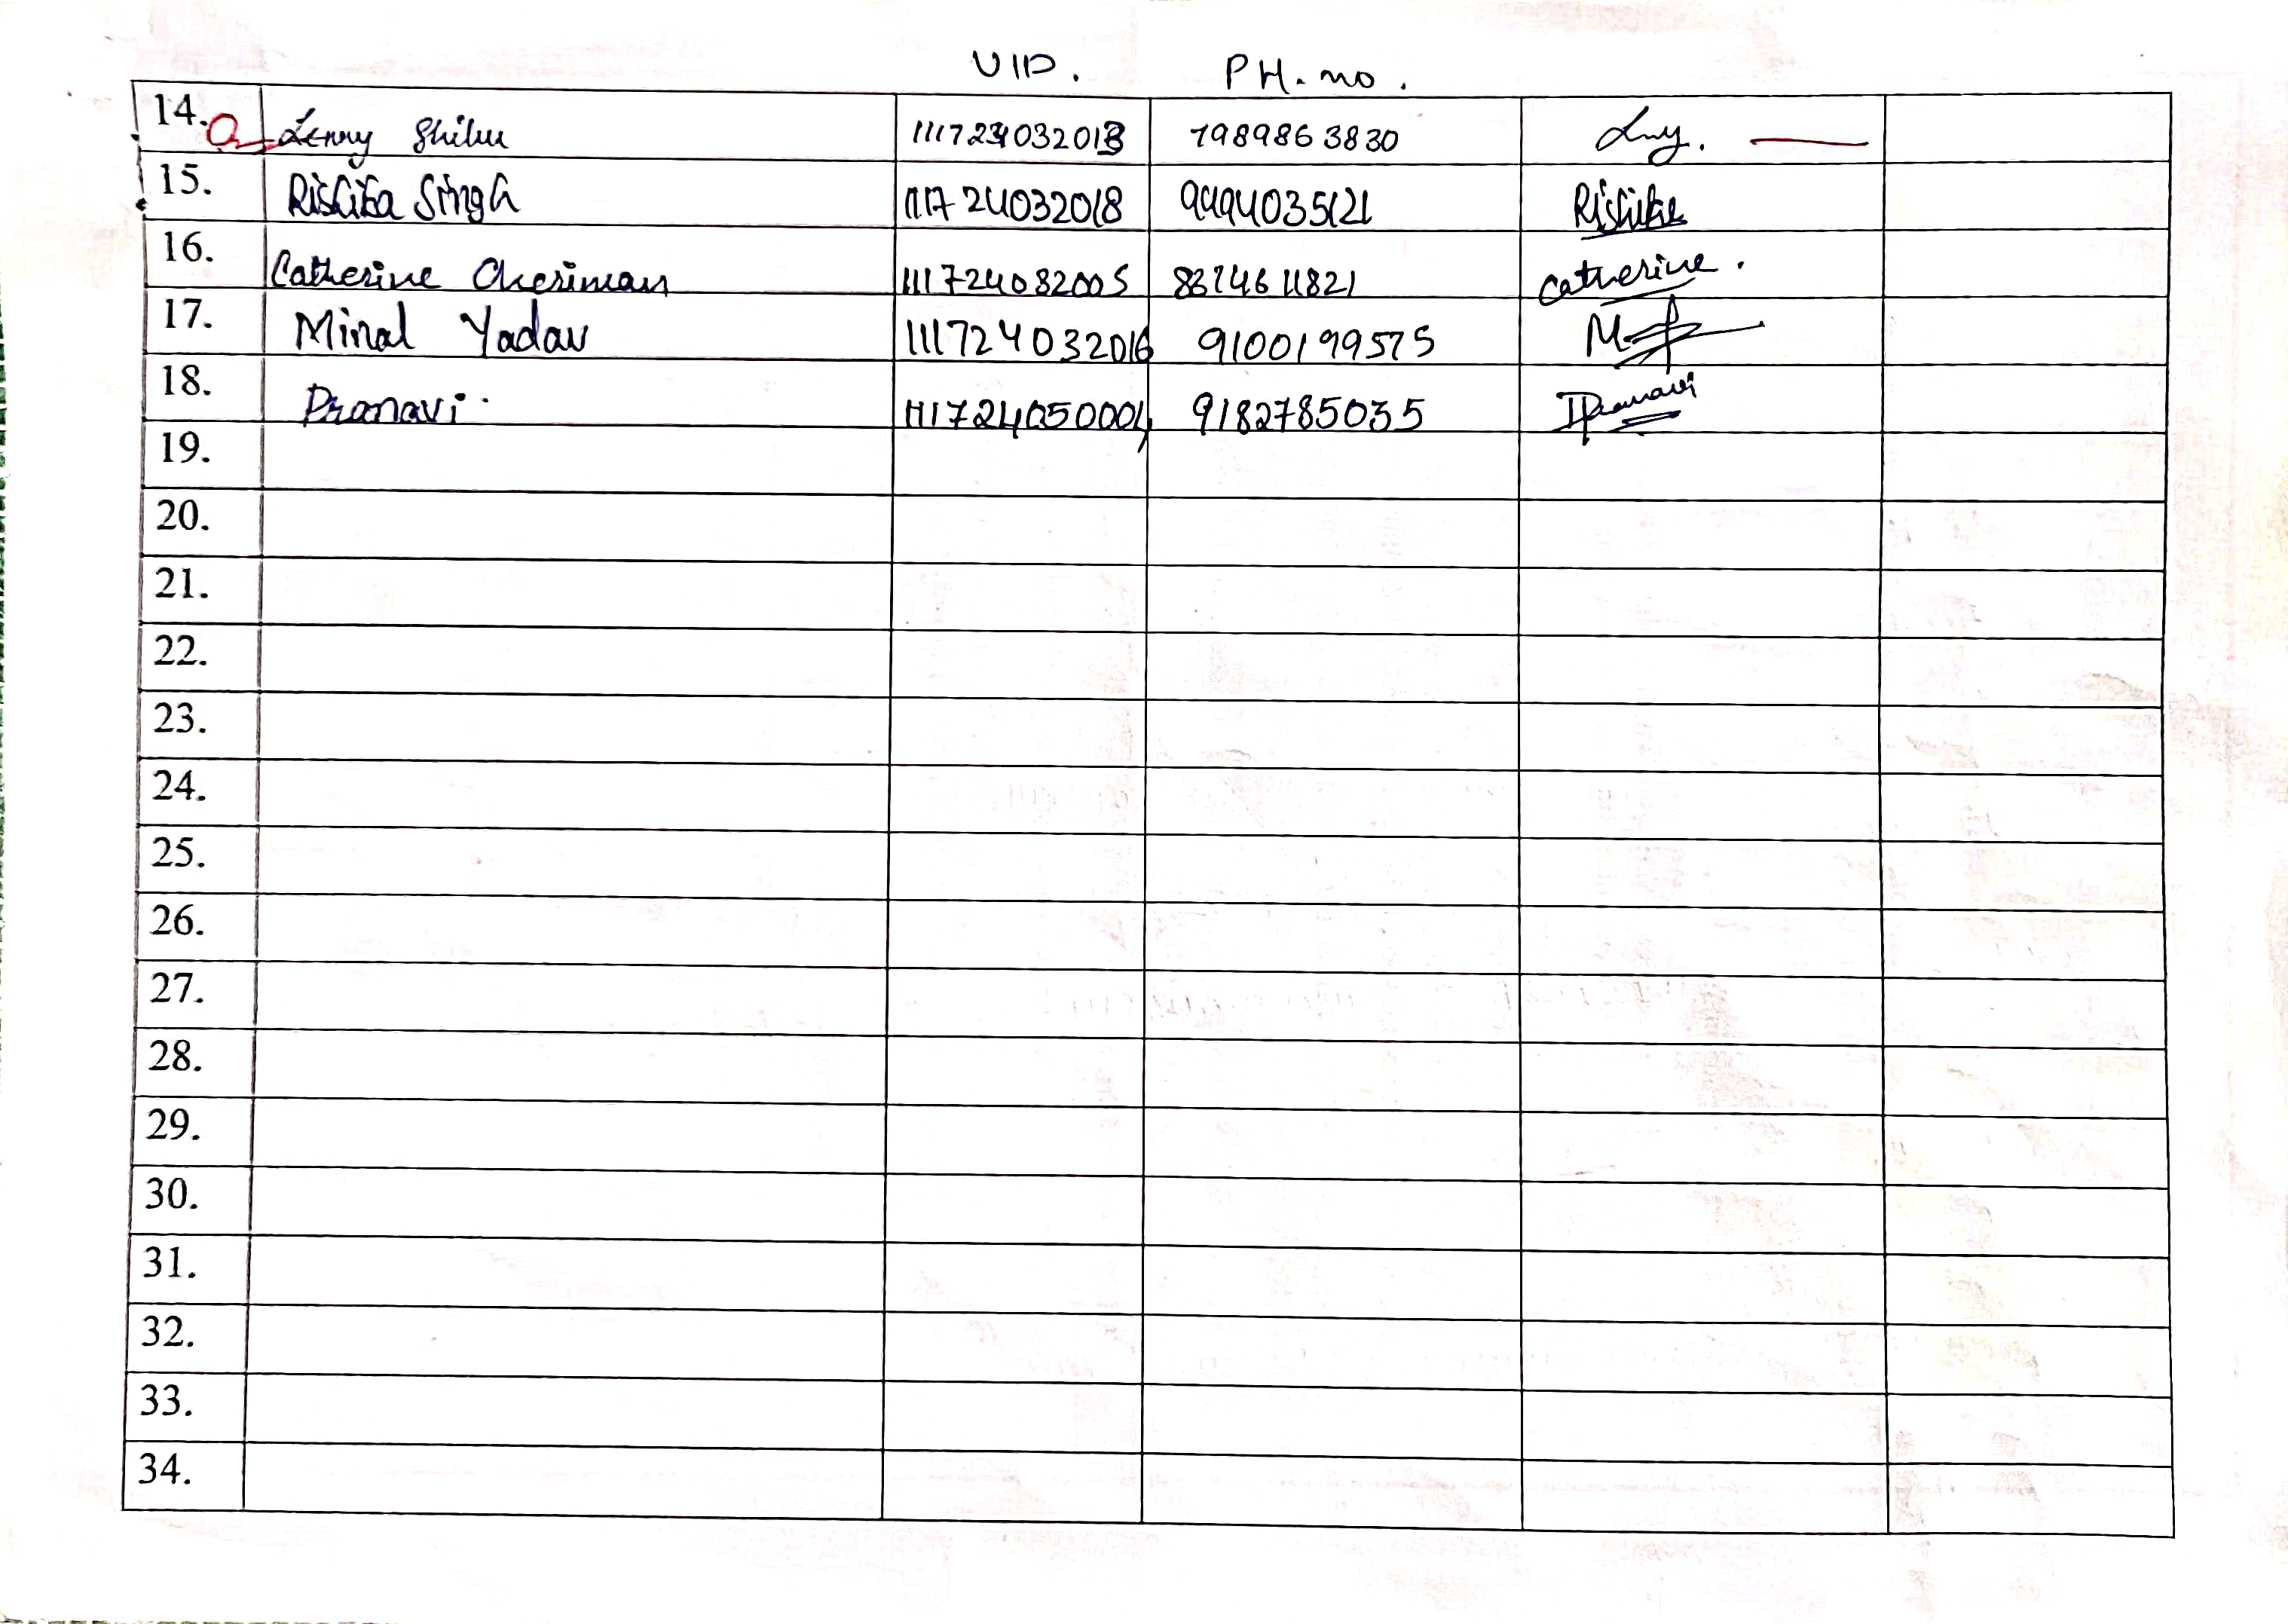 UID. PH. no.
14. Lenny Shibu 111724032013 7989863830
15. Rishika Singh 111724032018 9494035121 Rishika
16. Catherine Cheriman 111724032005 8374611821 Catherine.
17. Minal Yadav 111724032016 9100199575
18. Pranavi. 111724050004 9182785035 Pranavi
19.
20.
21.
22.
23.
24.
25.
26.
27.
28.
29.
30.
31.
32.
33.
34.